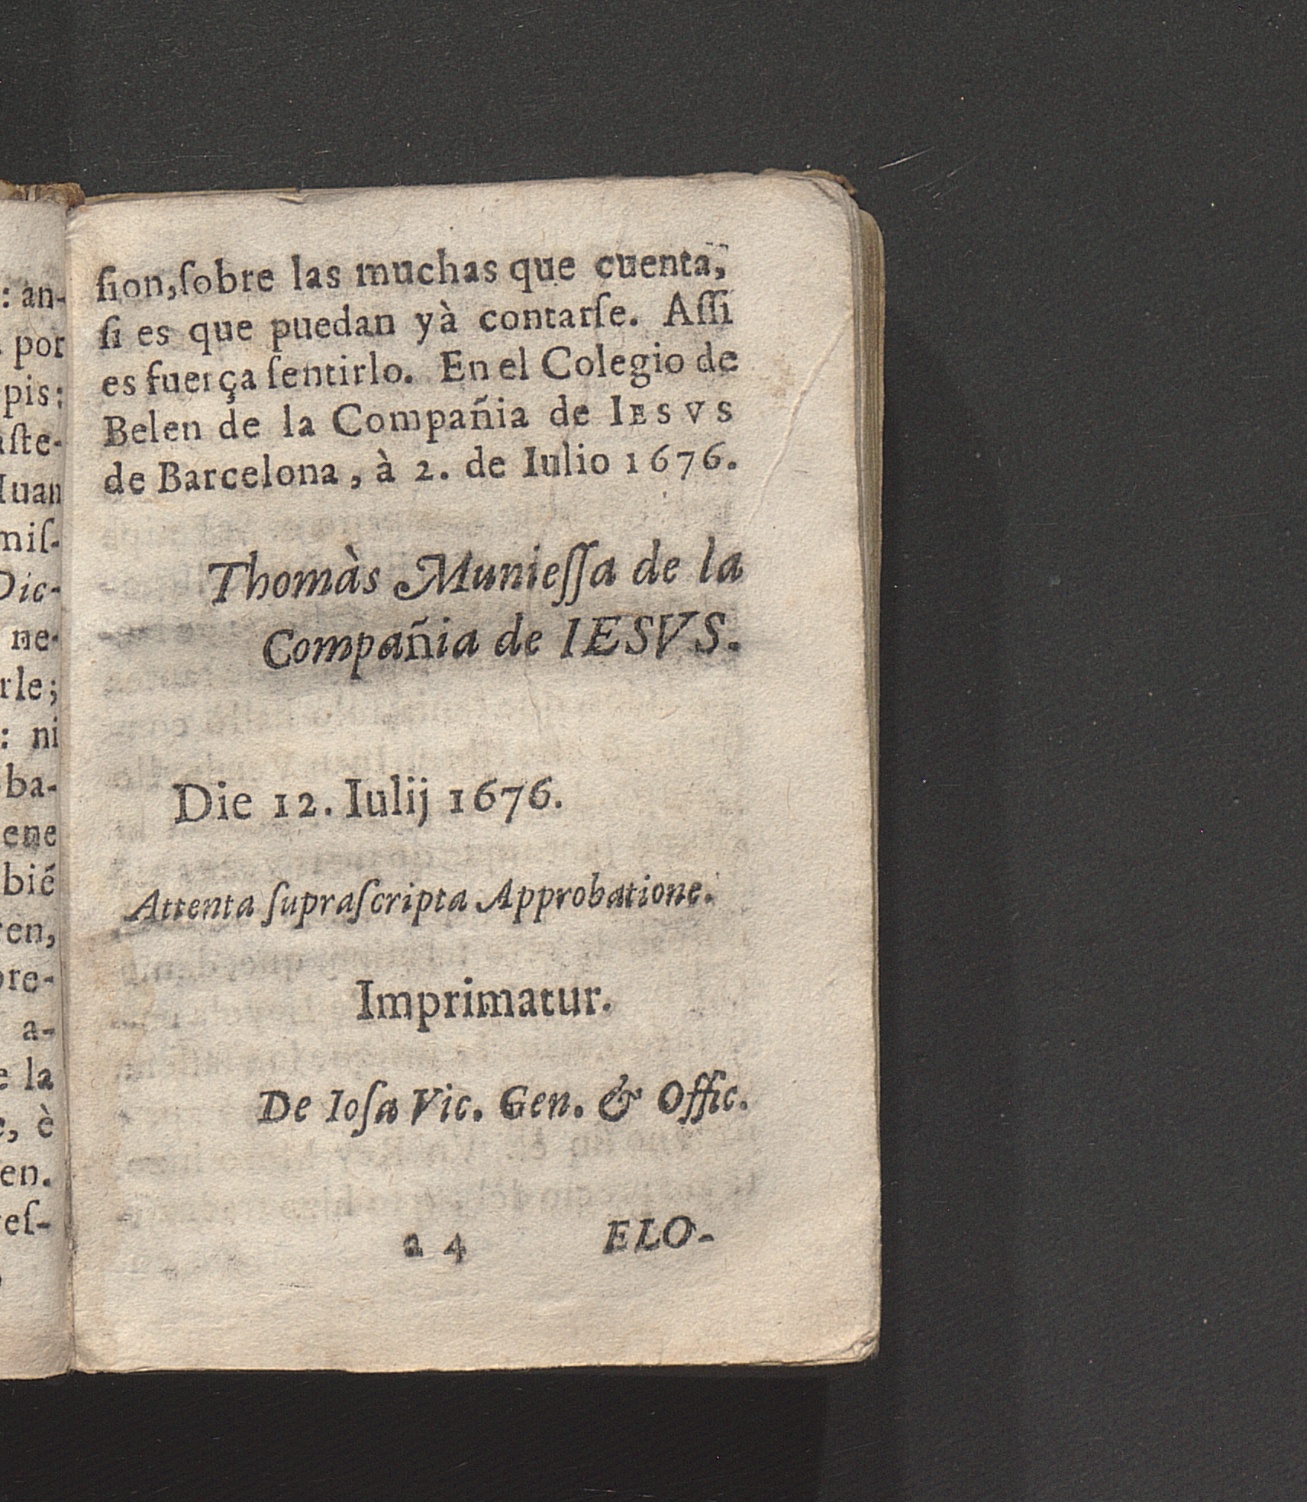 : an-
por
pis:
aſte-
Iuan
miſ-
Dic-
ne-
rle;
: ni
ba-
ene
bié
ren,
pre-
a-
e la
e, è
en.
reſ-
ſion,ſobre las muchas que cuenta,
ſi es que puedan yà contarſe. Aſſi
es fuerça ſentirlo. En el Colegio de
Belen de la Compañia de IESVS
de Barcelona, à 2. de Iulio 1676.
Thomàs Munieſſa de la
Compañia de IESVS.
Die 12. Iulij 1676.
Attenta ſupraſcripta Approbatione.
Imprimatur.
De Ioſa Vic. Gen. & Offic.
a 4 ELO-